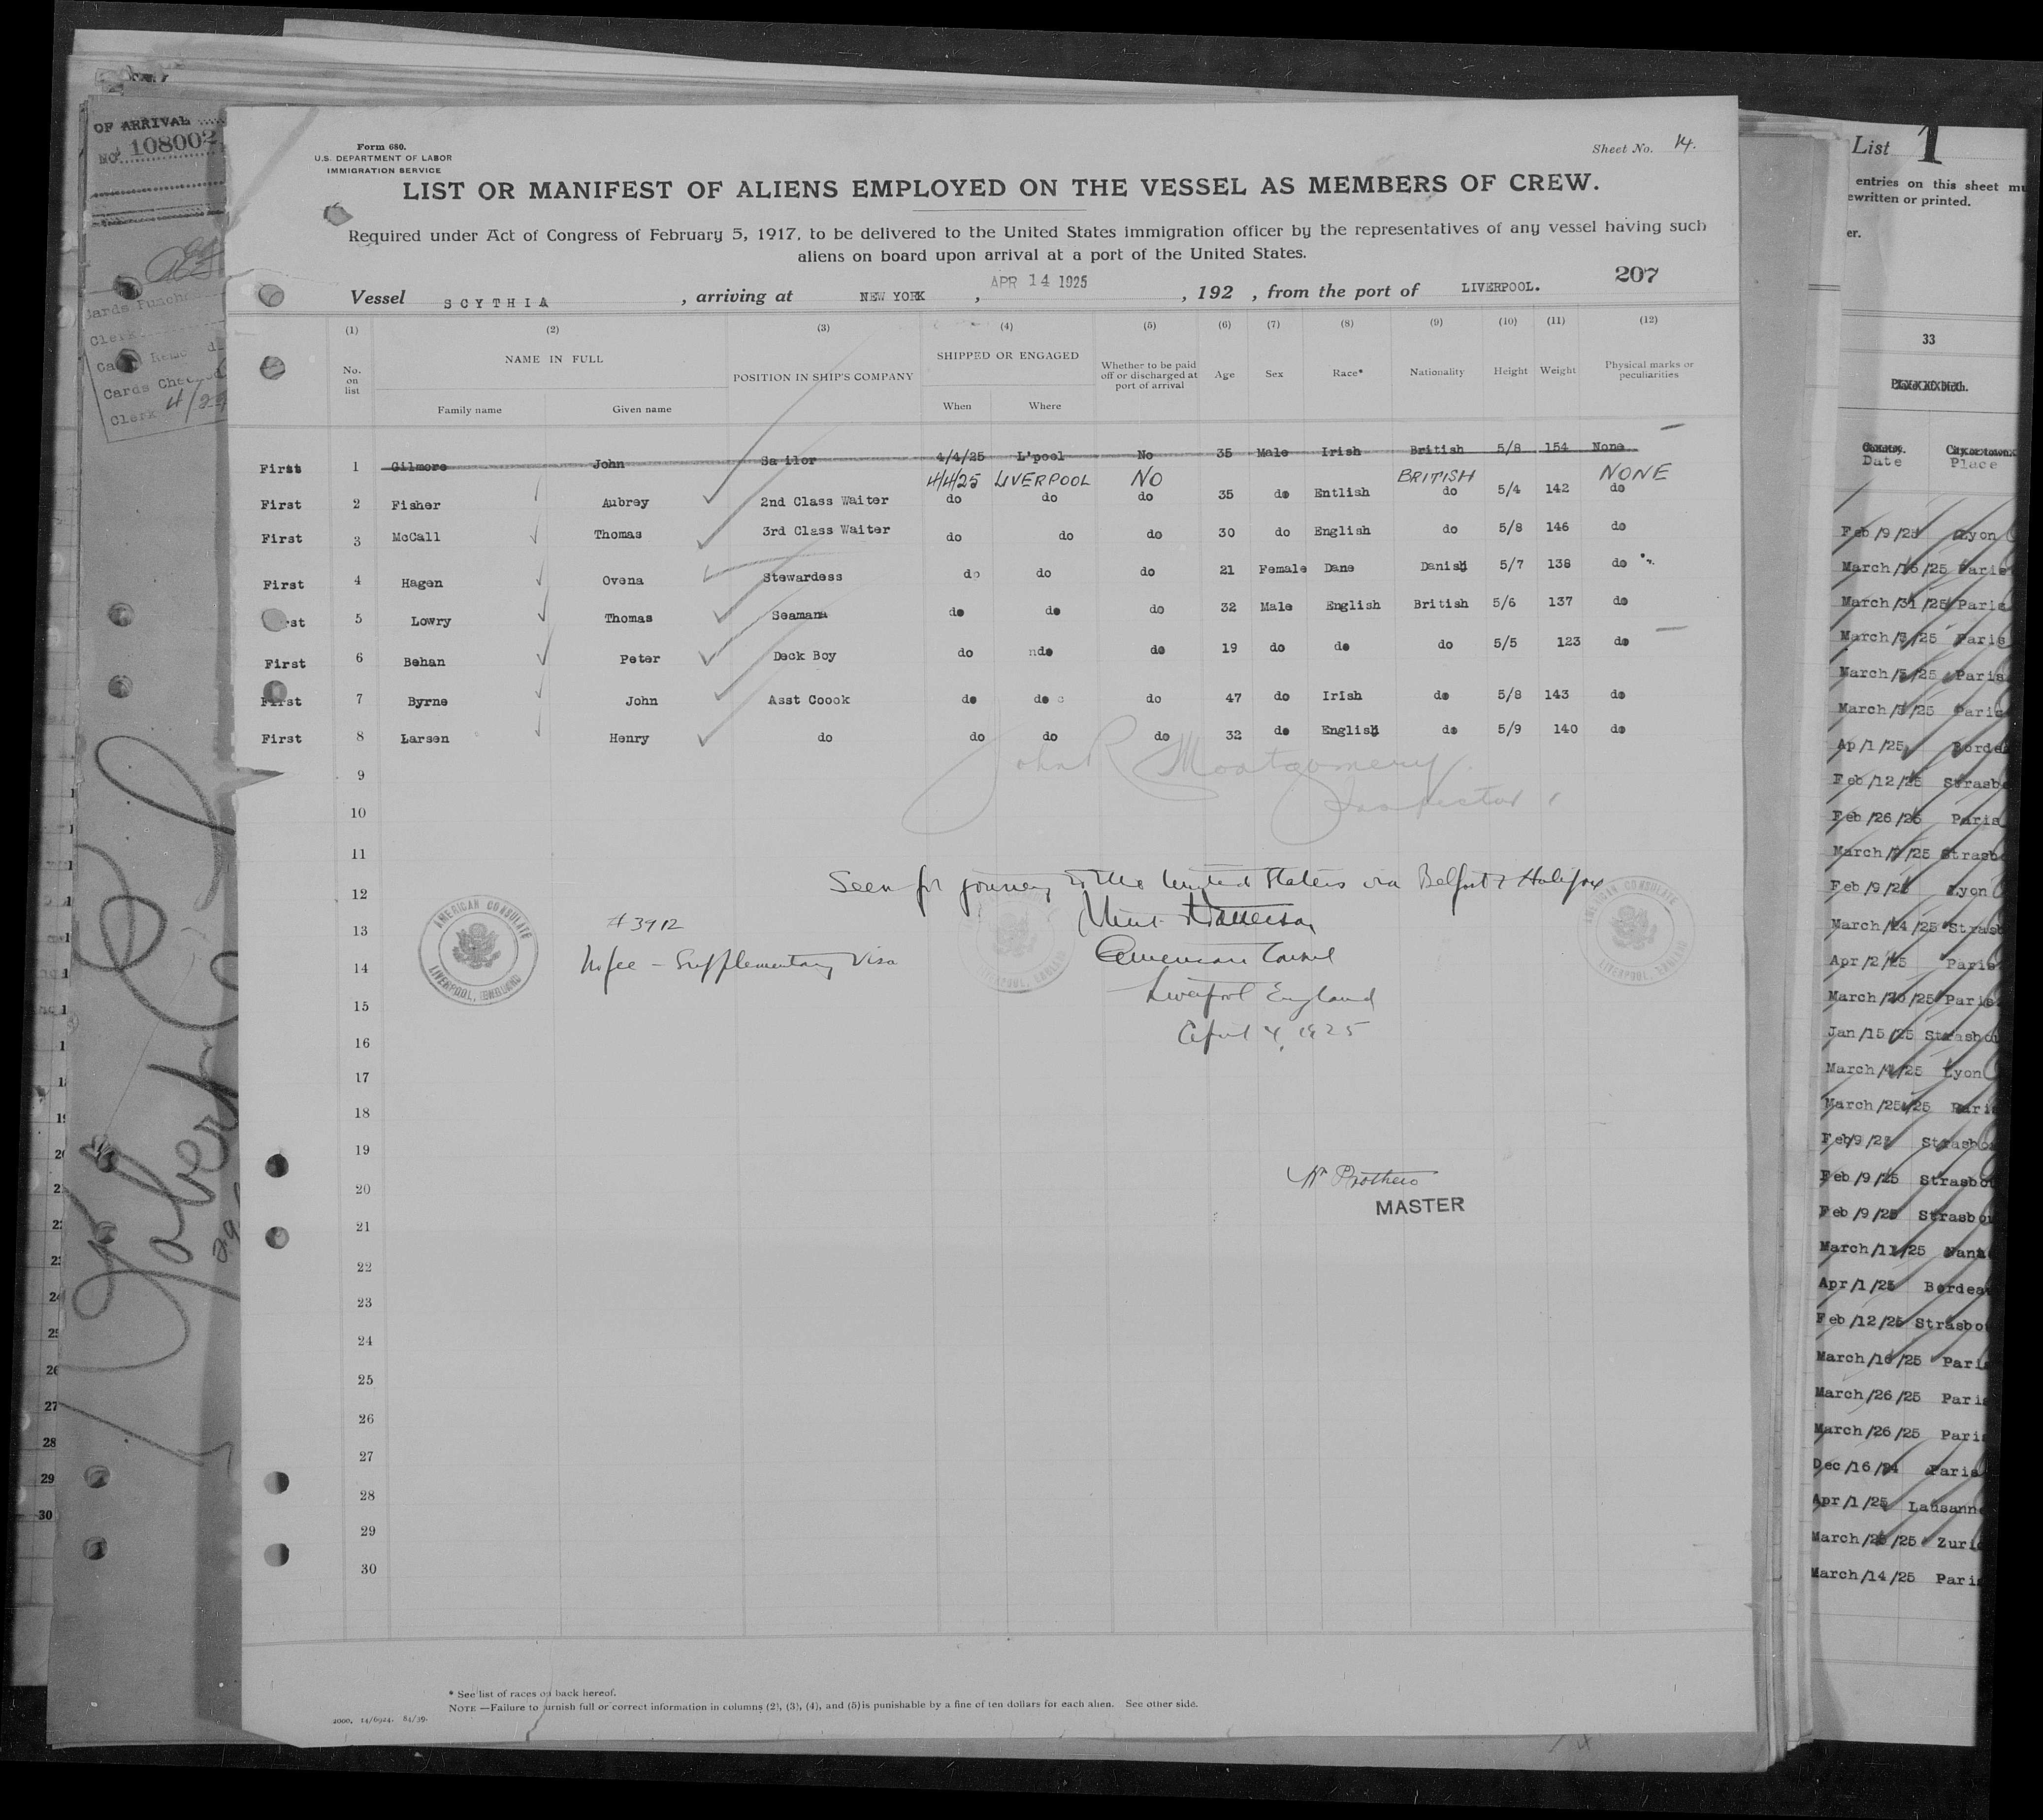 OF ARRIVAL
No. 108002
Cards Punche
Clerk
Cards Checked
Clerk 4/29
Form 680.
U.S. DEPARTMENT OF LABOR
IMMIGRATION SERVICE
Sheet No. 14.
LIST OR MANIFEST OF ALIENS EMPLOYED ON THE VESSEL AS MEMBERS OF CREW.
Required under Act of Congress of February 5, 1917, to be delivered to the United States immigration officer by the representatives of any vessel having such
aliens on board upon arrival at a port of the United States.
207
Vessel SCYTHIA, arriving at NEW YORK, APR 14 1925, 192 , from the port of LIVERPOOL.
(1) (2) (3) (4) (5) (6) (7) (8) (9) (10) (11) (12)
No. on list NAME IN FULL POSITION IN SHIP'S COMPANY SHIPPED OR ENGAGED Whether to be paid off or discharged at port of arrival Age Sex Race* Nationality Height Weight Physical marks or peculiarities
Family name Given name When Where
First 1 Gilmore John Sailor 4/4/25 L'pool No 35 Male Irish British 5/8 154 None
4/4/25 LIVERPOOL NO BRITISH NONE
First 2 Fisher Aubrey 2nd Class Waiter do do do 35 do Entlish do 5/4 142 do
First 3 McCall Thomas 3rd Class Waiter do do do 30 do English do 5/8 146 do
First 4 Hagen Ovena Stewardess do do do 21 Female Dane Danish 5/7 138 do
rst 5 Lowry Thomas Seamana do do do 32 Male English British 5/6 137 do
First 6 Behan Peter Deck Boy do ndo do 19 do do do 5/5 123 do
First 7 Byrne John Asst Coook do do do 47 do Irish do 5/8 143 do
First 8 Larsen Henry do do do do 32 do English do 5/9 140 do
9
John R Montgomery.
Inspector
10
11
12 Seen for journey to the United States via Belfast & Halifax
13 #3912
14 No fee - Supplementary Visa American Consul
15 Liverpool England
16 April 4, 1925
AMERICAN CONSULATE
LIVERPOOL, ENGLAND
AMERICAN CONSULATE
LIVERPOOL, ENGLAND
17
18
19
20 W Prothero
MASTER
21
22
23
24
25
26
27
28
29
30
* See list of races on back hereof.
NOTE —Failure to furnish full or correct information in columns (2), (3), (4), and (5) is punishable by a fine of ten dollars for each alien. See other side.
2000, 14/6924. 84/39.
List 1
entries on this sheet mu
ewritten or printed.
er.
33
Date Place
Feb/9/25 Lyon
March/16/25 Paris
March/31/25 Paris
March/3/25 Paris
March/3/25 Paris
March/3/25 Paris
Ap/1/25 Borde
Feb/12/25 Strasb
Feb/26/25 Paris
March/7/25 Strasb
Feb/9/25 Lyon
March/24/25 Strasb
Apr/2/25 Paris
March/20/25 Paris
Jan/15/25 Strasbou
March/4/25 Lyon
March/25/25 Pari
Feb/9/25 Strasbo
Feb/9/25 Strasbou
Feb/9/25 Strasbou
March/11/25 Nant
Apr/1/25 Bordea
Feb/12/25 Strasbo
March/16/25 Pari
March/26/25 Pari
March/26/25 Pari
Dec/16/24 Paris
Apr/1/25 Lausanne
March/25/25 Zuri
March/14/25 Pari